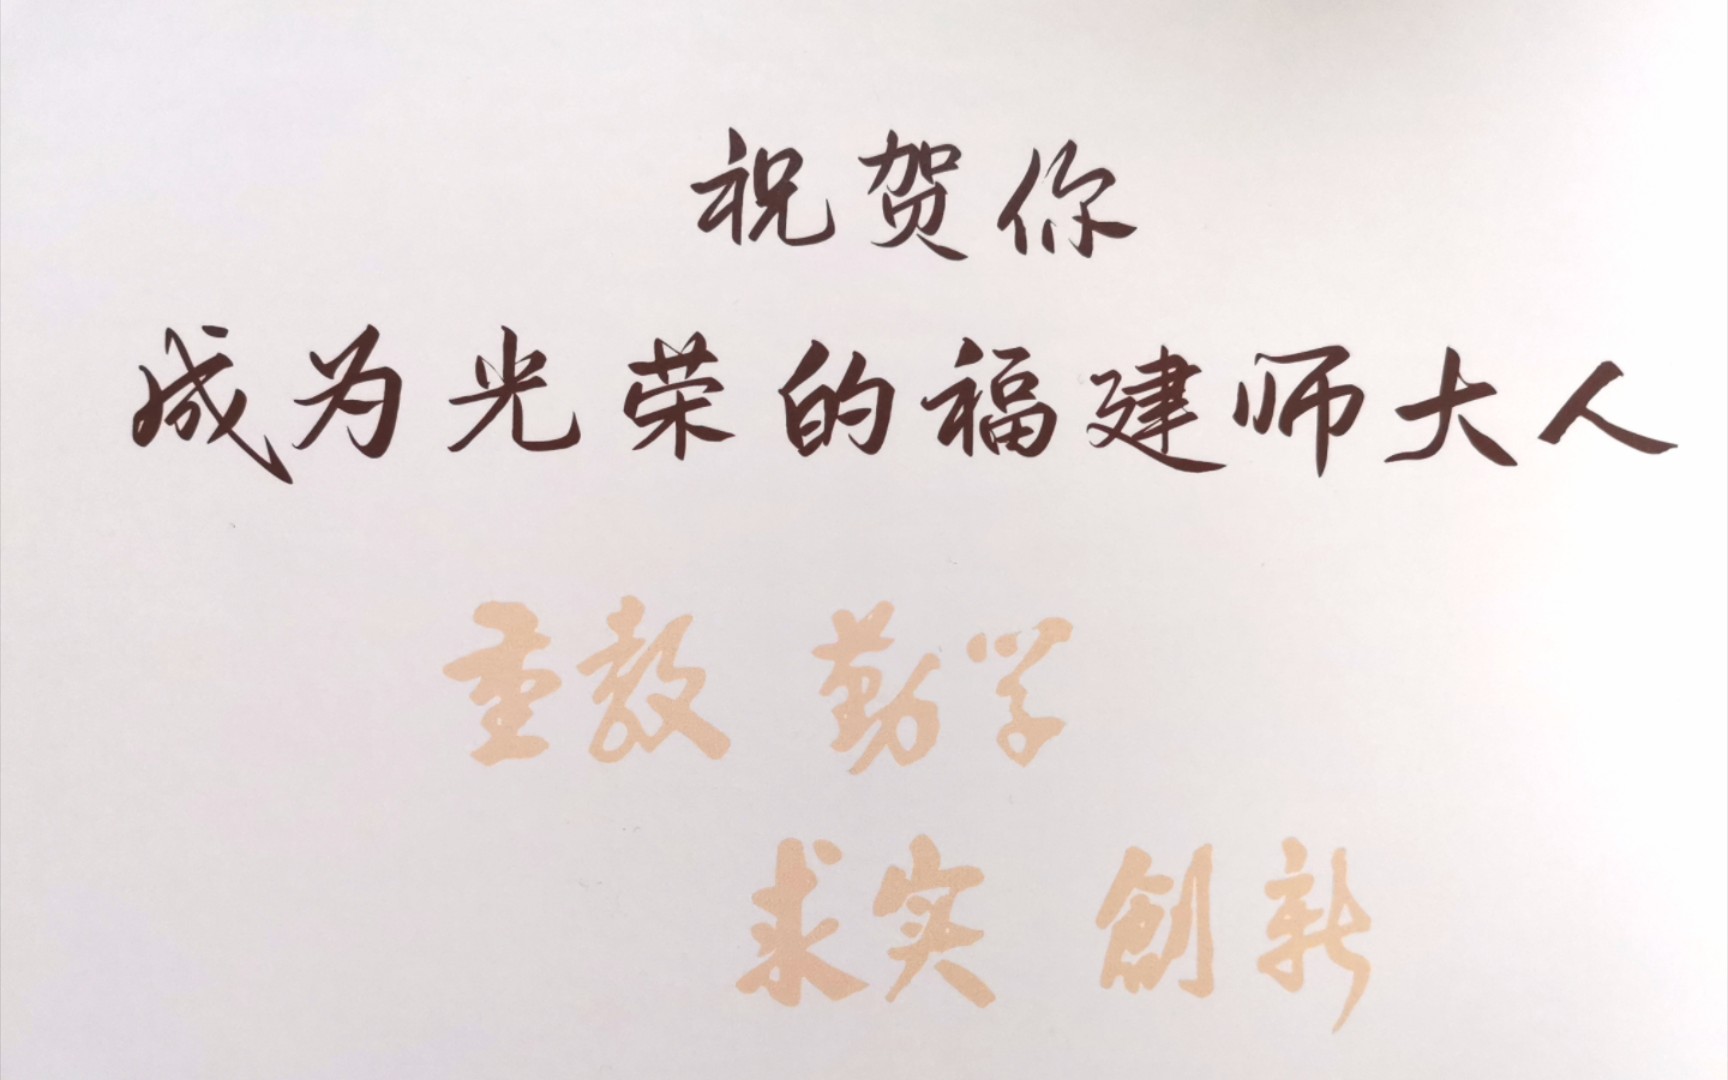 祝贺你
成为光荣的福建师大人
重教 勤学
求实 創新